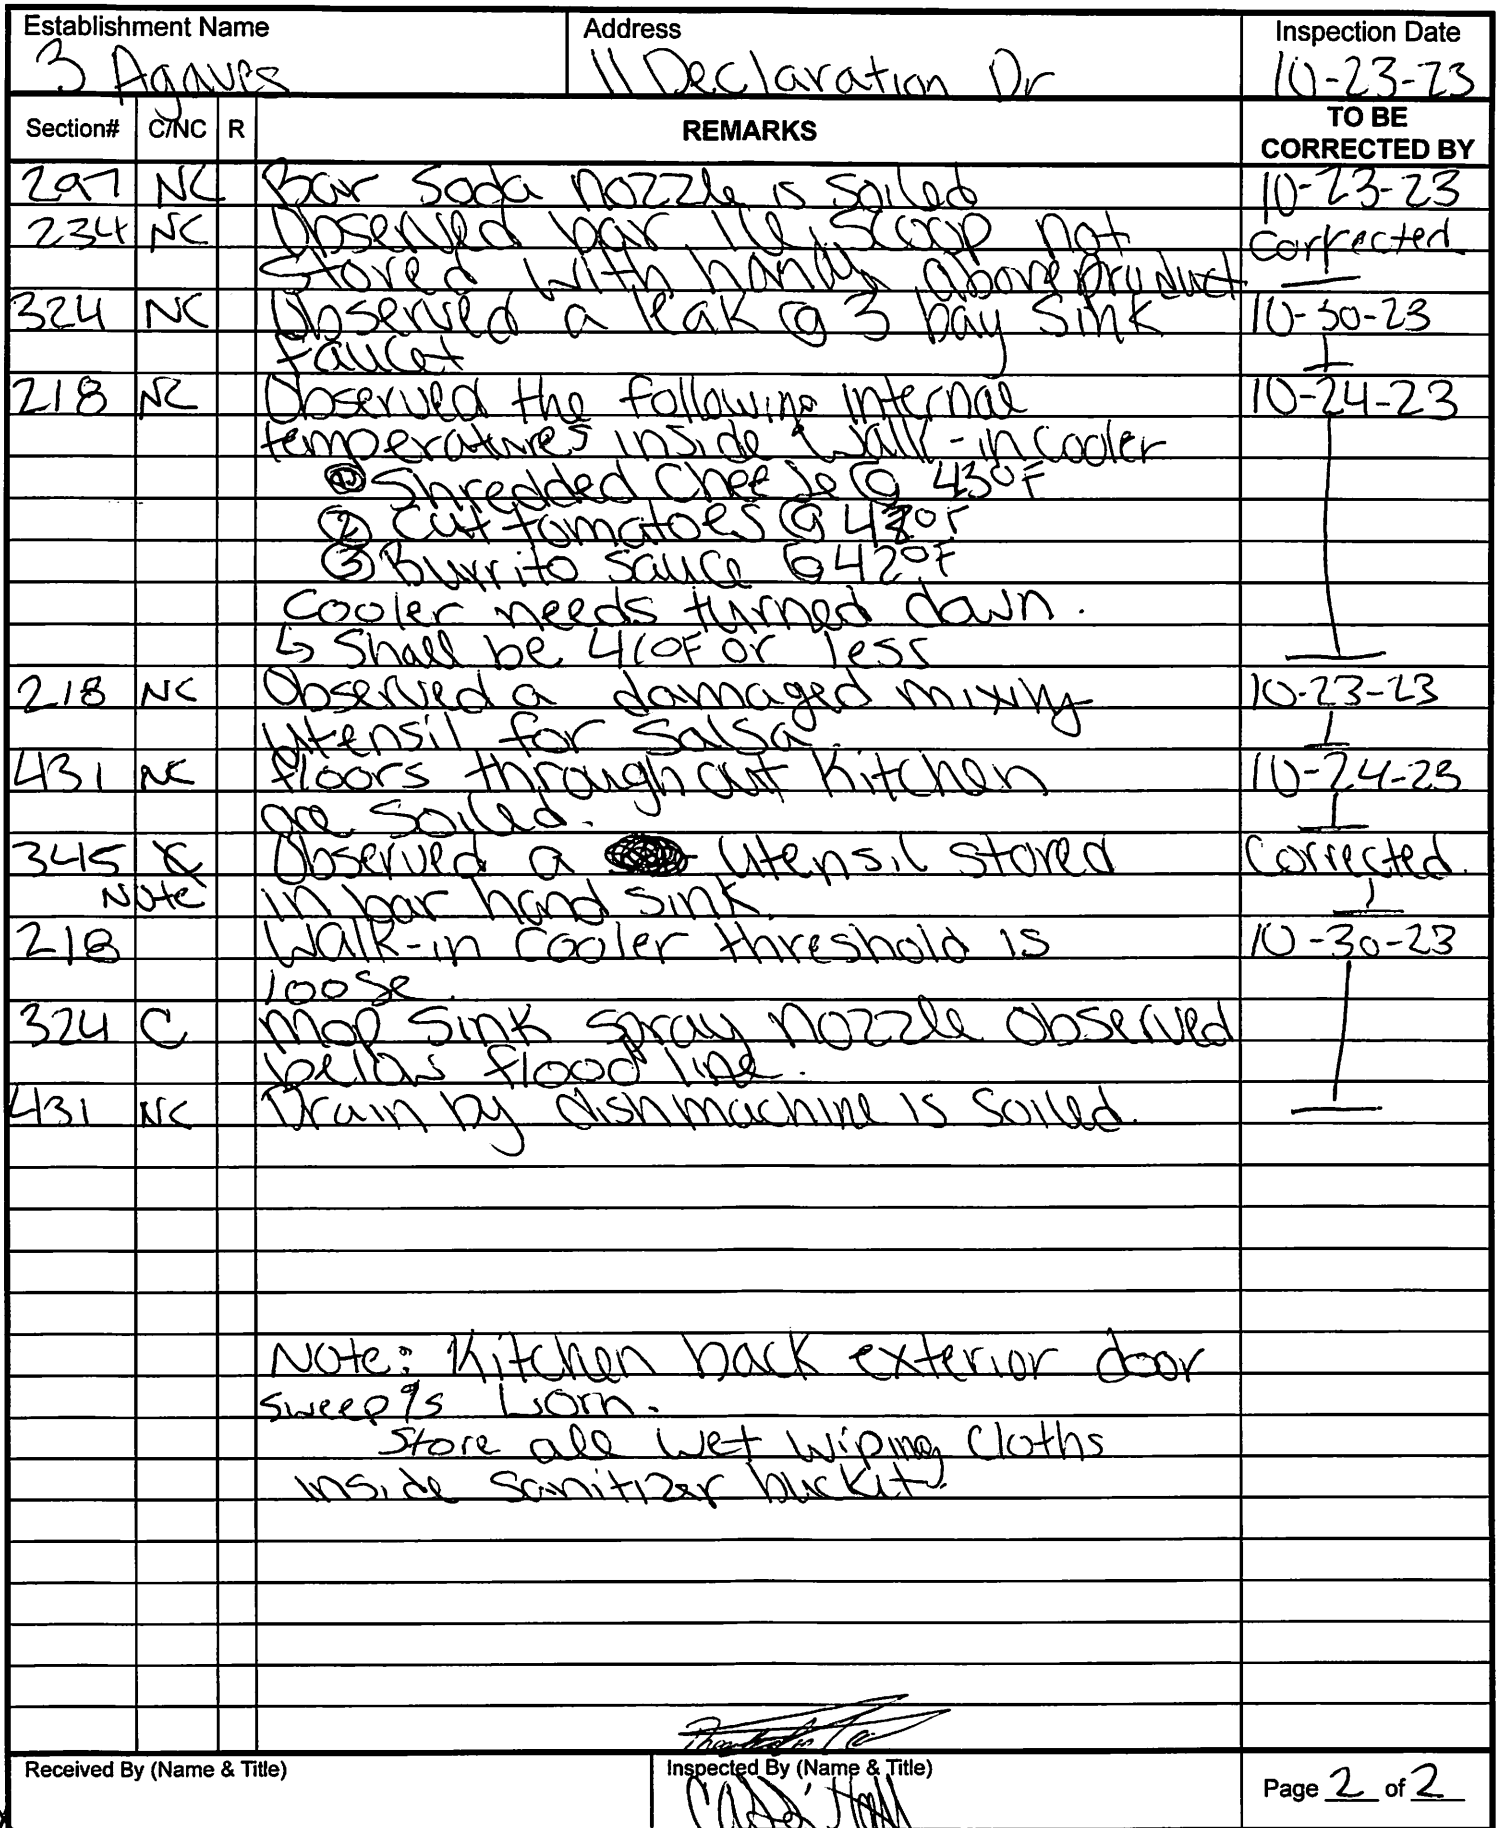 Establishment Name Address Inspection Date
3 Agaves 11 Declaration Dr 10-23-23
Section# C/NC R REMARKS TO BE CORRECTED BY
297 NC Bar Soda nozzle is soiled 10-23-23
234 NC Observed bar ice scoop not Corrected
stored with handle above product
324 NC Observed a leak @ 3 bay sink 10-30-23
faucet
218 NC Observed the following internal 10-24-23
temperatures inside walk-in cooler
① Shredded Cheese @ 43°F
② Cut tomatoes @ °F
③ Burrito sauce @ 42°F
Cooler needs turned down.
↳ Shall be 41°F or less
218 NC Observed a damaged mixing 10-23-23
utensil for salsa.
431 NC floors throughout Kitchen 10-24-23
are soiled.
345 C Observed a utensil stored Corrected.
Note in bar hand sink.
218 Walk-in cooler threshold is 10-30-23
loose.
324 C Mop sink spray nozzle observed
below flood line.
431 NC Drain by dishmachine is soiled.
Note: Kitchen back exterior door
sweep is worn.
Store all wet wiping cloths
inside sanitizer buckit.
Received By (Name & Title) Inspected By (Name & Title) Page 2 of 2